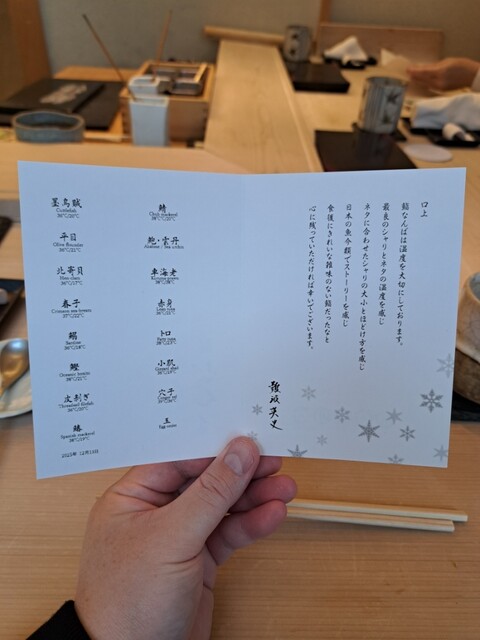 墨烏賊
Cuttlefish
平目
Olive flounder
36℃/21℃
北寄貝
Hen clam
36℃/17℃
春子
Crimson sea bream
37℃/22℃
鰯
Sardine
36℃/18℃
鰹
Oceanic bonito
38℃/21℃
皮剥ぎ
Threadsail filefish
36℃/20℃
鰆
Spanish mackerel
38℃/23℃
2023年 12月13日
鯖
Chub mackerel
鮑・雲丹
Abalone / Sea urchin
車海老
Kuruma prawn
赤身
Lean tuna
トロ
Fatty tuna
小肌
Gizzard shad
穴子
Conger eel
玉
Egg custard
口上
鮨なんばは温度を大切にしております。
最良のシャリとネタの温度を感じ
ネタに合わせたシャリの大小とほどけ方を感じ
日本の魚介類でストーリーを感じ
食後にきれいな雑味のない鮨だったなと
心に残っていただければ幸いでございます。
難波英史